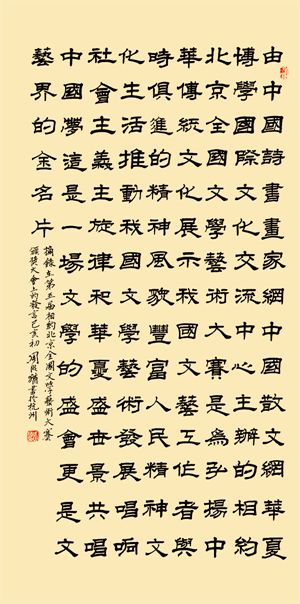 由中國詩書畫家網中國散文網華夏
博學國際文化交流中心主辦的相約
北京全國文學藝術大賽是爲弘揚中
華傳統文化展示我國文藝工作者與
時俱進的精神風貌豐富人民精神文
化生活推動我國文學藝術發展唱响
社會主義主旋律和華夏盛世景共唱
中國夢這是一場文學的盛會更是文
藝界的金名片
摘錄在第五屆相約北京全國文學藝術大賽
頒獎大會上的發言己亥初 周書於杭州